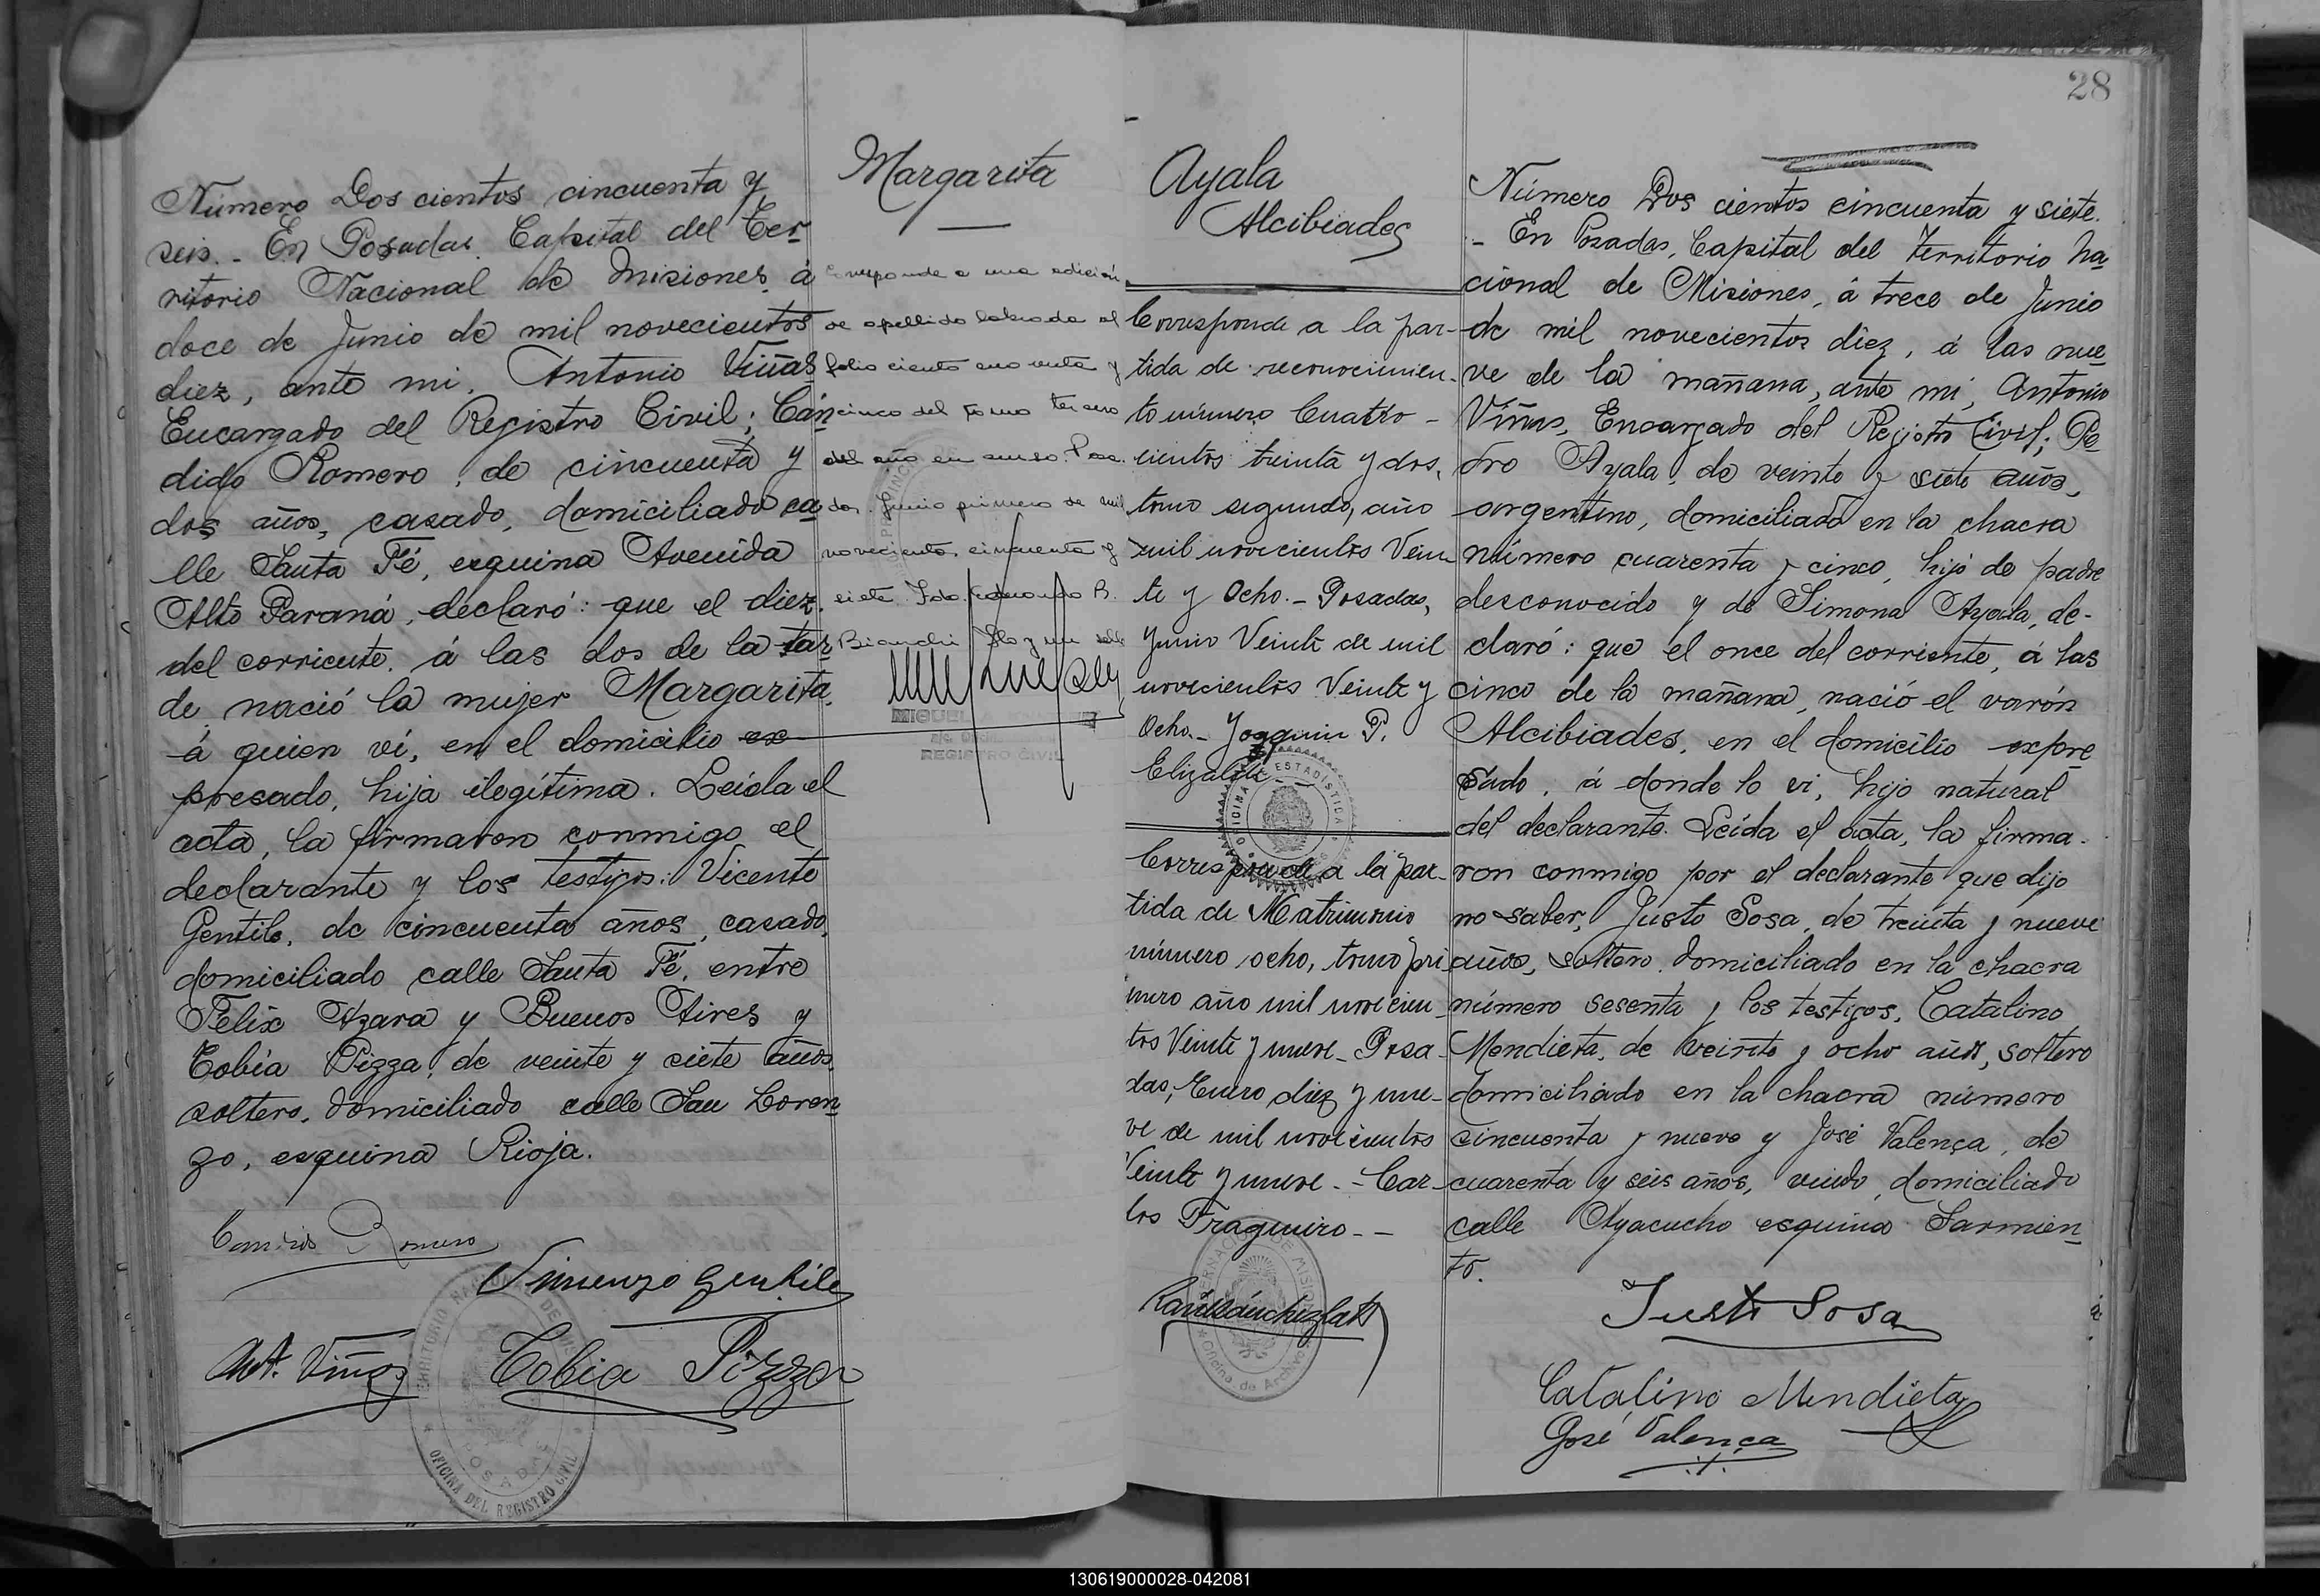 Número Dos cientos cincuenta y
seis. - En Posadas, Capital del Ter
ritorio Nacional de Misiones, á
doce de Junio de mil novecientos
diez, ante mi, Antonio Viñas
Encargado del Registro Civil; Cán
dido Romero, de cincuenta y
dos años, casado, domiciliado ca
lle Santa Fé, esquina Avenida
Alto Paraná, declaró: que el diez
del corriente, á las dos de la tar
de nació la mujer Margarita,
á quien ví, en el domicilio ex
presado, hija ilegítima. Leida el
acta, la firmaron conmigo el
declarante y los testigos: Vicente
Gentile, de cincuenta años, casado,
domiciliado calle Santa Fé, entre
Felix Azara y Buenos Aires y
Tobia Pizza, de veinte y siete años,
soltero, domiciliado calle San Loren
zo, esquina Rioja.
Romero
Vincenzo Gentile
Ant. Viñas
Tobia Pizza
TERRITORIO NACIONAL DE MISIONES
POSADAS
OFICINA DEL REGISTRO CIVIL
Margarita
Corresponde a una adición
de apellido labrada al
folio ciento noventa y
cinco del tomo tercero
del año en curso. Posa
das. Junio primero de mil
novecientos cincuenta y
siete. Fdo. R.
Bianchi
REGISTRO CIVIL
28
Ayala
Alcibiades
Corresponde a la par-
tida de reconocimien-
to número Cuatro-
cientos treinta y dos,
tomo segundo, año
mil novecientos Vein
te y Ocho. - Posadas,
Junio Veinte de mil
novecientos Veinte y
Ocho. - Joaquin P.
Elizalde
OFICINA DE ESTADISTICA
Corresponde a la par-
tida de Matrimonio
número ocho, tomo pri
mero año mil novecien
tos Veinte y nueve - Posa-
das, Enero diez y nue-
ve de mil novecientos
Veinte y nueve. - Car-
los Fragueiro. -
Número Dos cientos cincuenta y siete.
- En Posadas, Capital del Territorio Na
cional de Misiones, á trece de Junio
de mil novecientos diez, á las nue
ve de la mañana, ante mi, Antonio
Viñas, Encargado del Registro Civil; Pe
dro Ayala, de veinte y siete años,
argentino, domiciliado en la chacra
número cuarenta y cinco, hijo de padre
desconocido y de Simona Ayala, de-
claró: que el once del corriente, á las
cinco de la mañana, nació el varón
Alcibiades, en el domicilio expre
sado, á donde lo vi, hijo natural
del declarante. Leída el acta, la firma-
ron conmigo por el declarante que dijo
no saber, Justo Sosa, de treinta y nueve
años, soltero, domiciliado en la chacra
número sesenta y los testigos, Catalino
Mendieta, de veinte y ocho años, soltero
domiciliado en la chacra número
cincuenta y nueve y José Valença, de
cuarenta y seis años, viudo, domiciliado
calle Ayacucho esquina Sarmien
to.
Justo Sosa
Catalino Mendieta
José Valença
130619000028-042081